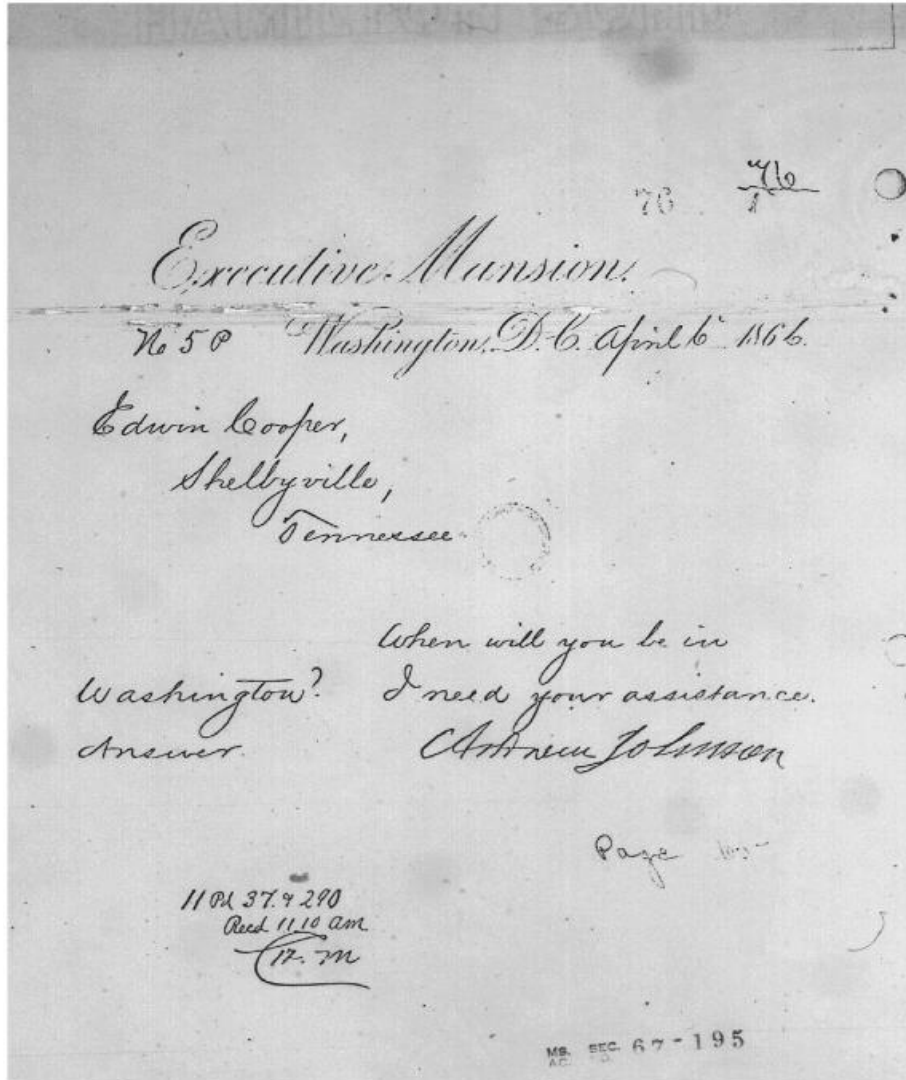 76 76
1
Executive Mansion.
No 5 P Washington, D.C. April 6 1866.
Edwin Cooper,
Shelbyville,
Tennessee.
When will you be in
Washington? I need your assistance.
Answer. Andrew Johnson
Page
11 Pd 37. & 290
Recd 11.10 am
12. M
MS. SEC. 67-195
AC.